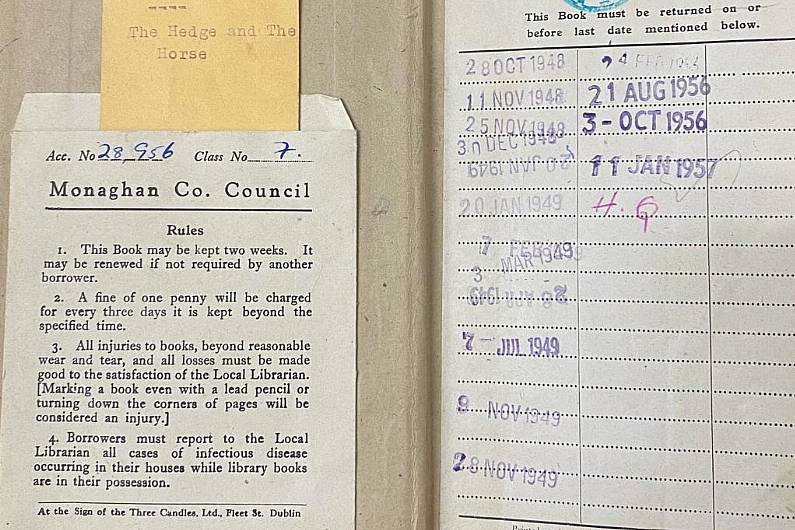 The Hedge and The
Horse
Acc. No 28,956 Class No 7.
Monaghan Co. Council
Rules
1. This Book may be kept two weeks. It
may be renewed if not required by another
borrower.
2. A fine of one penny will be charged
for every three days it is kept beyond the
specified time.
3. All injuries to books, beyond reasonable
wear and tear, and all losses must be made
good to the satisfaction of the Local Librarian.
[Marking a book even with a lead pencil or
turning down the corners of pages will be
considered an injury.]
4. Borrowers must report to the Local
Librarian all cases of infectious disease
occurring in their houses while library books
are in their possession.
At the Sign of the Three Candles, Ltd., Fleet St. Dublin
This Book must be returned on or
before last date mentioned below.
28 OCT 1948
11 NOV 1948
25 NOV 1948
30 DEC 1948
20 JAN 1949
20 JAN 1949
7 FEB 1949
3 MAR 1949
28 APR 1949
7 - JUL 1949
9 NOV 1949
28 NOV 1949
24 FEB
21 AUG 1956
3 - OCT 1956
11 JAN 1957
H. Q